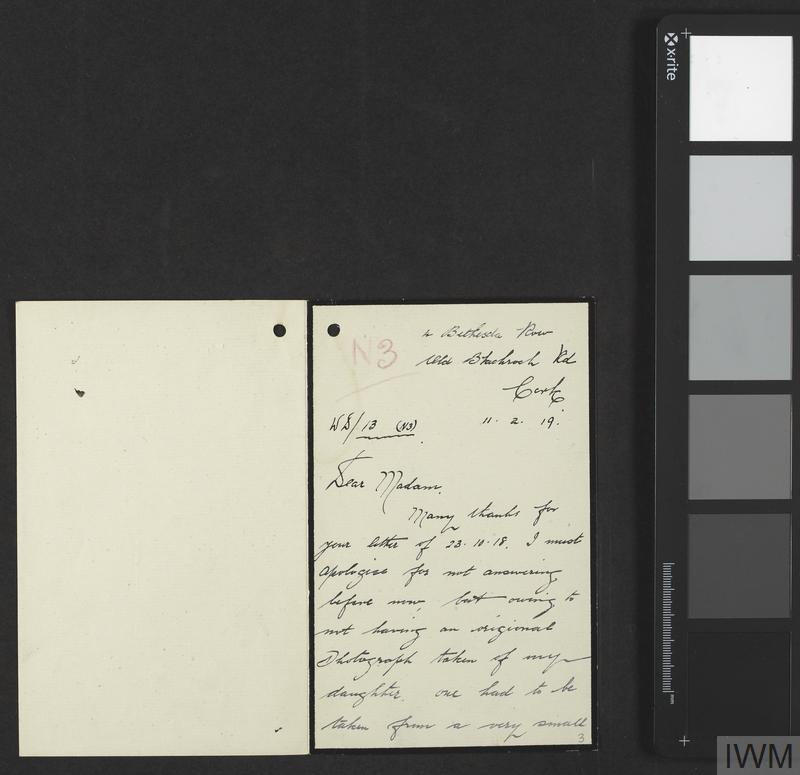 N3
4 Bethesda Row
Old Blackrock Rd
Cork
WS/13 (N3)
11. 2. 19.
Dear Madam,
Many thanks for
your letter of 23.10.18. I must
apologise for not answering
before now, but owing to
not having an origional
Photograph taken of my
daughter, one had to be
taken from a very small
3
x-rite
mm
IWM